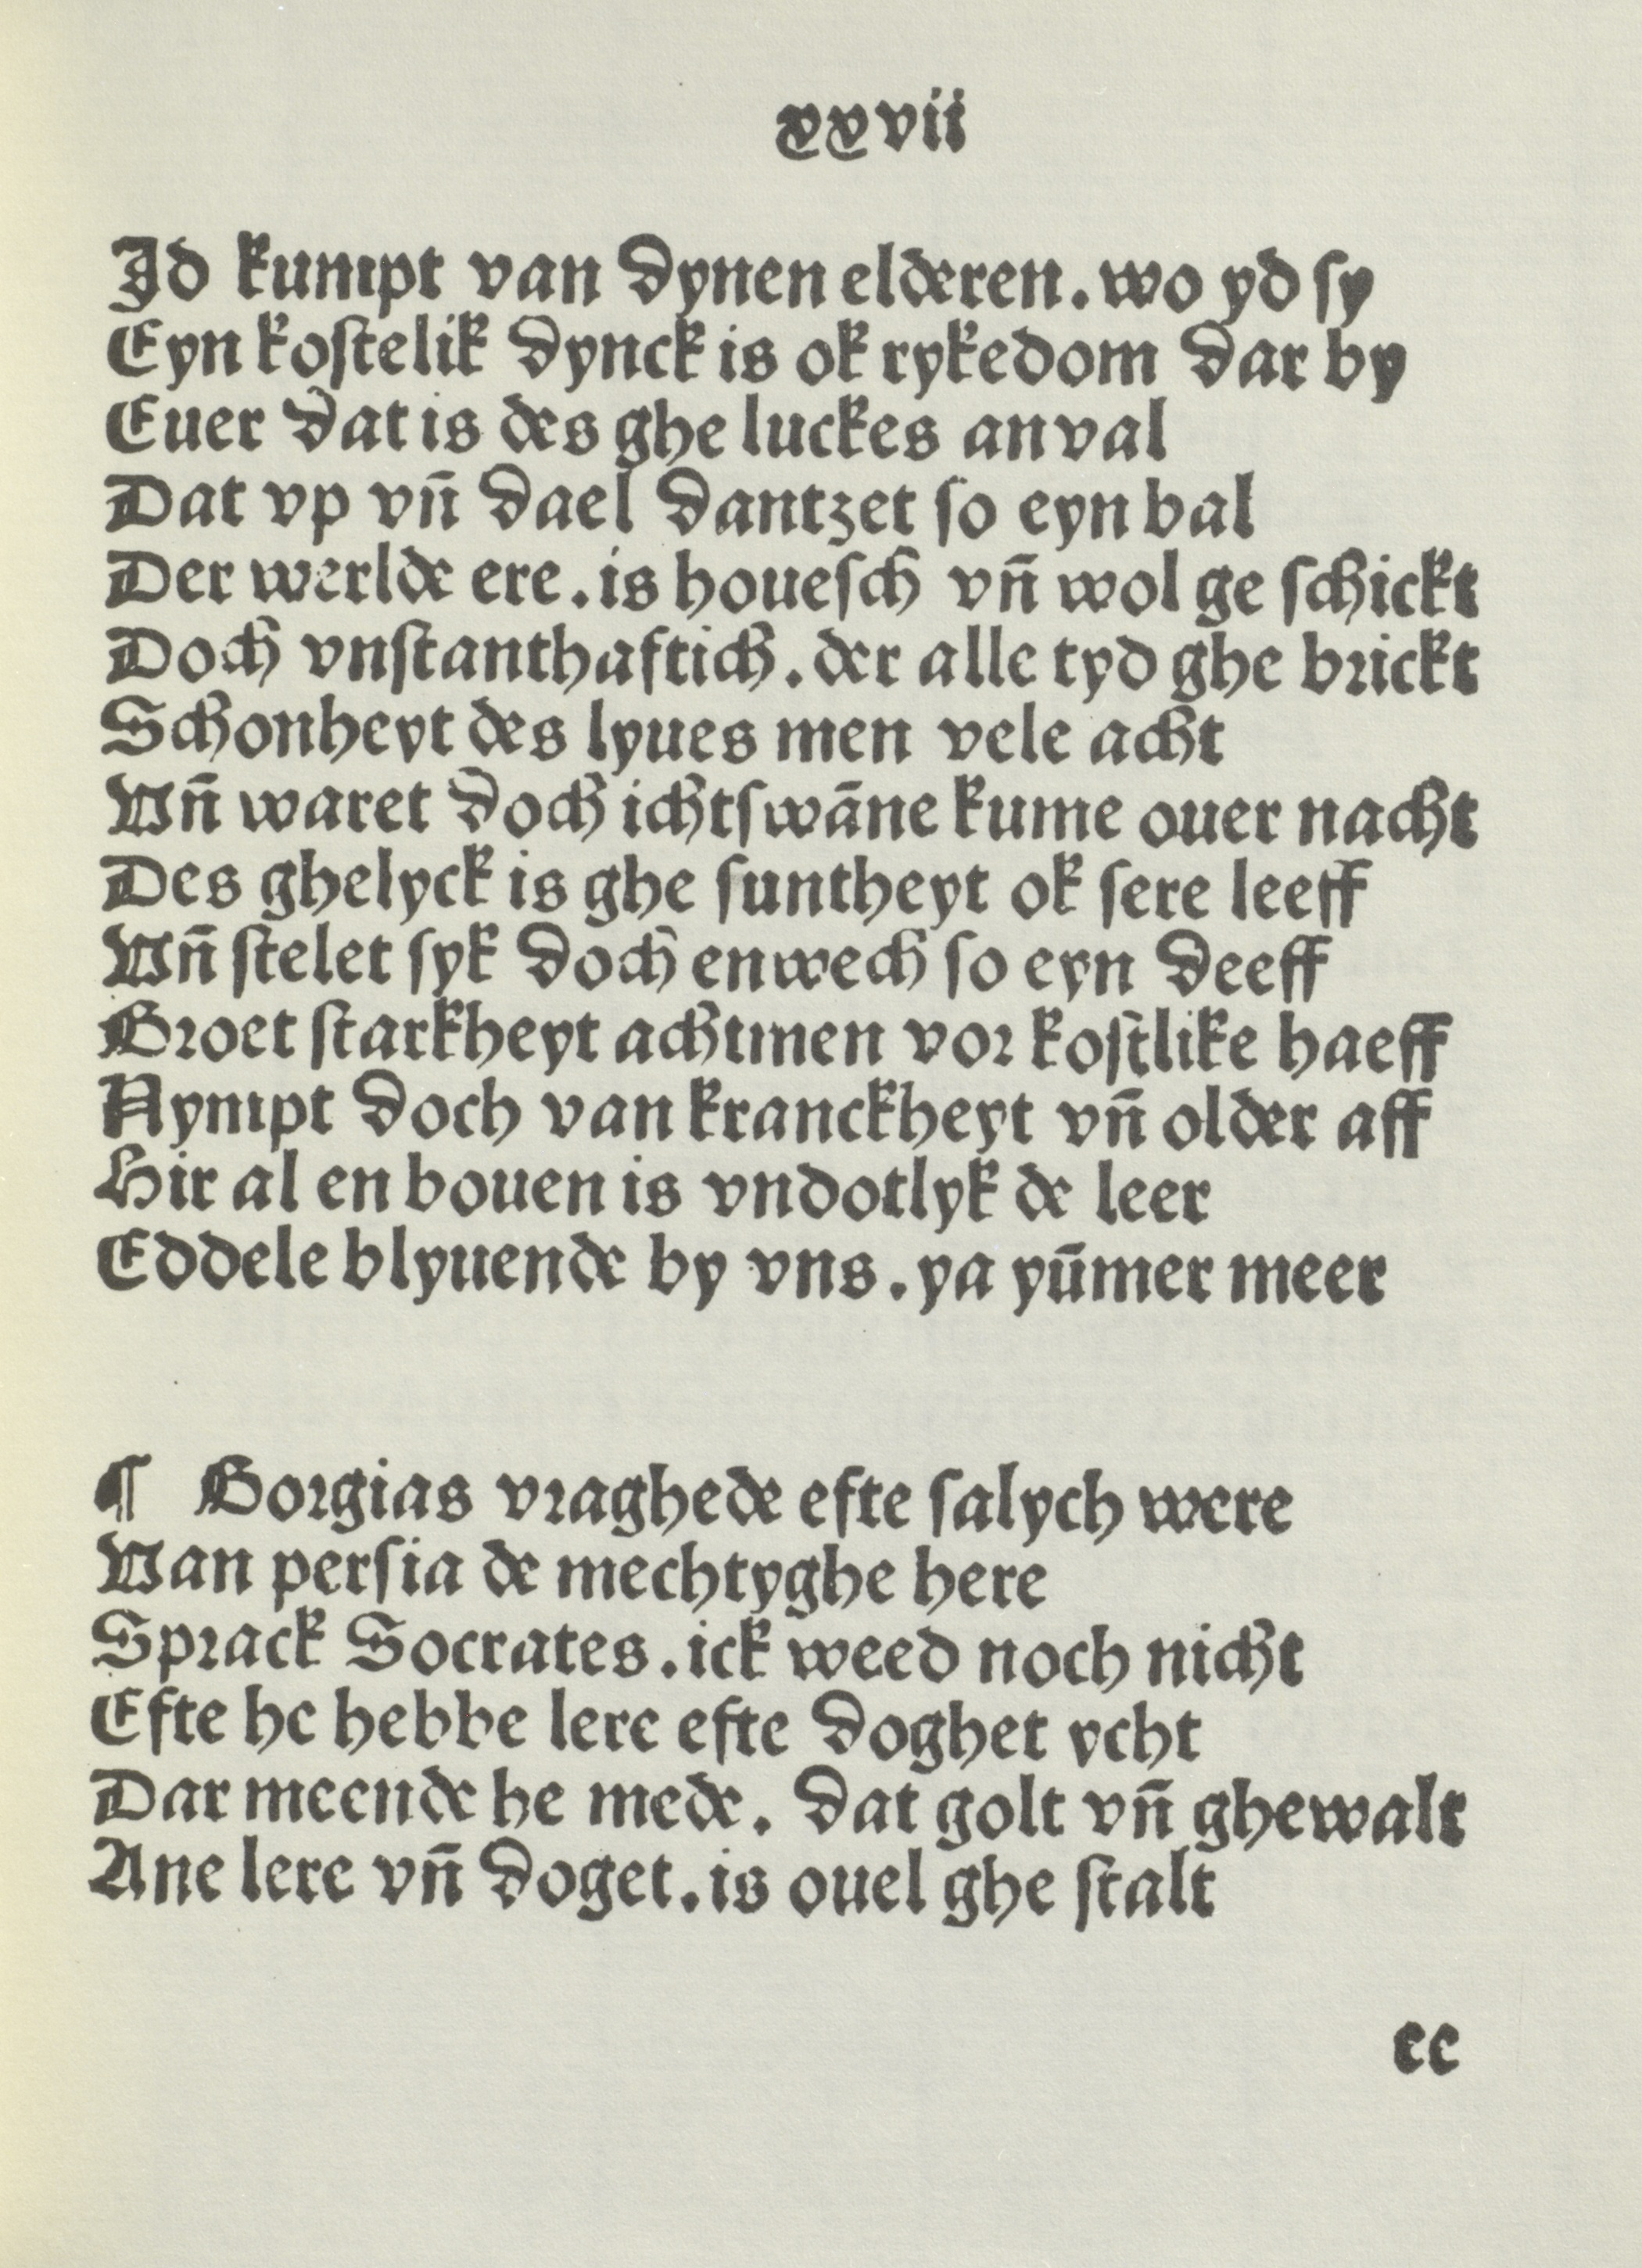 xxvii
Id kumpt van dynen elderen. wo yd ſy
Eyn koſtelik dynck is ok rykedom dar by
Euer dat is des ghe luckes anval
Dat vp vn̄ dael dantzet ſo eyn bal
Der werlde ere. is houeſch vn̄ wol ge ſchickt
Doch vnſtanthaftich. der alle tyd ghe brickt
Schonheyt des lyues men vele acht
Vn̄ waret doch ichtſwāne kume ouer nacht
Des ghelyck is ghe ſuntheyt ok ſere leeff
Vn̄ ſtelet ſyk doch enwech ſo eyn deeff
Groet ſtarkheyt achtmen vor koſtlike haeff
Nympt doch van kranckheyt vn̄ older aff
Hir al en bouen is vndotlyk de leer
Eddele blyuende by vns. ya yūmer meer
¶ Gorgias vraghede efte ſalych were
Van perſia de mechtyghe here
Sprack Socrates. ick weed noch nicht
Efte he hebbe lere efte doghet ycht
Dar meende he mede. dat golt vn̄ ghewalt
Ane lere vn̄ doget. is ouel ghe ſtalt
cc